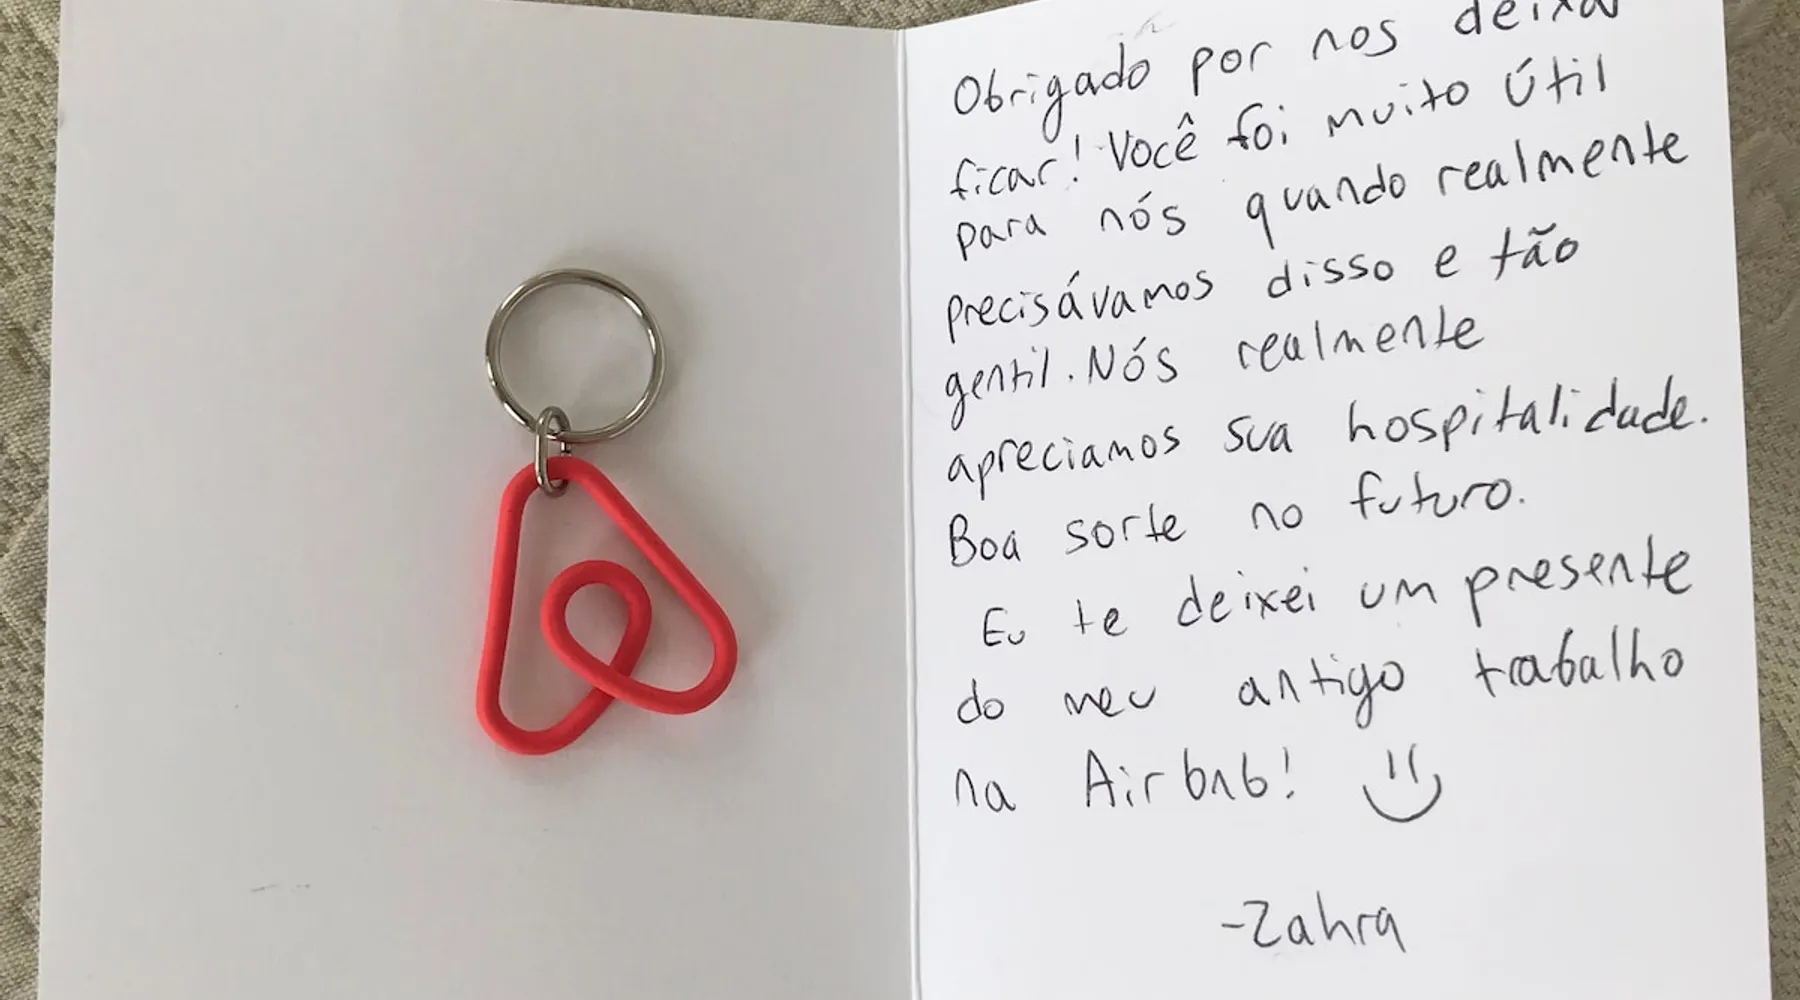 Obrigado por nos deixar
ficar! Você foi muito útil
para nós quando realmente
precisávamos disso e tão
gentil. Nós realmente
apreciamos sua hospitalidade.
Boa sorte no futuro.
Eu te deixei um presente
do meu antigo trabalho
na Airbnb!
-Zahra